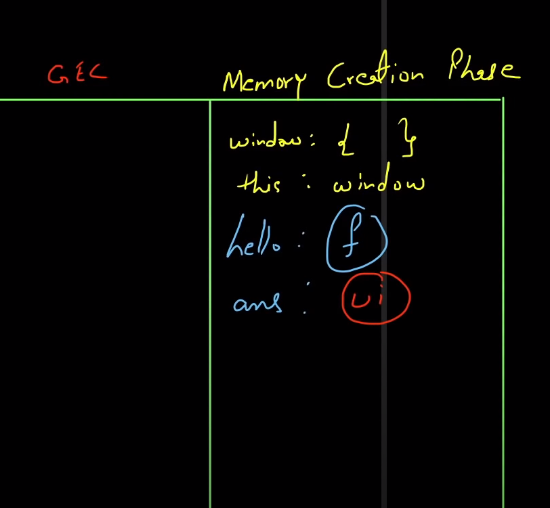 GEC
Memory Creation Phase
window: { }
this : window
hello : f
ans : ui